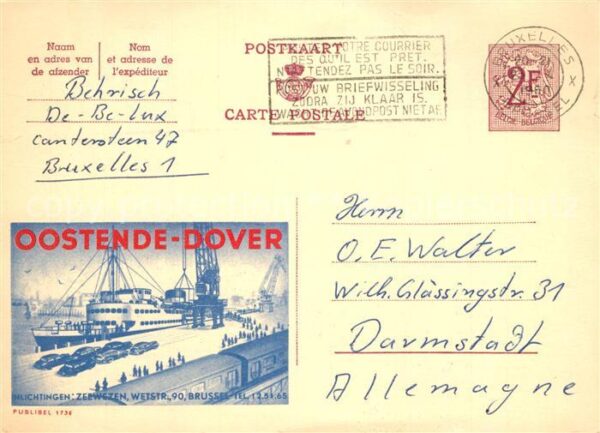 Naam
en adres van
de afzender
Nom
et adresse de
l'expéditeur
POSTKAART
CARTE POSTALE
VOTRE COURRIER
DES QU'IL EST PRET.
N'ATTENDEZ PAS LE SOIR.
UW BRIEFWISSELING
ZODRA ZIJ KLAAR IS.
WACHT DE AVONDPOST NIET AF.
BRUXELLES X
BRUSSEL
2F
BELGIE-BELGIQUE
Behrisch
De-Be-Lux
Cantersteen 47
Bruxelles 1
OOSTENDE-DOVER
INLICHTINGEN: ZEEWEZEN, WETSTR., 90, BRUSSEL TEL. 12.51.65
PUBLIBEL 1736
Herrn
O. E. Walter
Wilh. Glässingstr. 31
Darmstadt
Allemagne